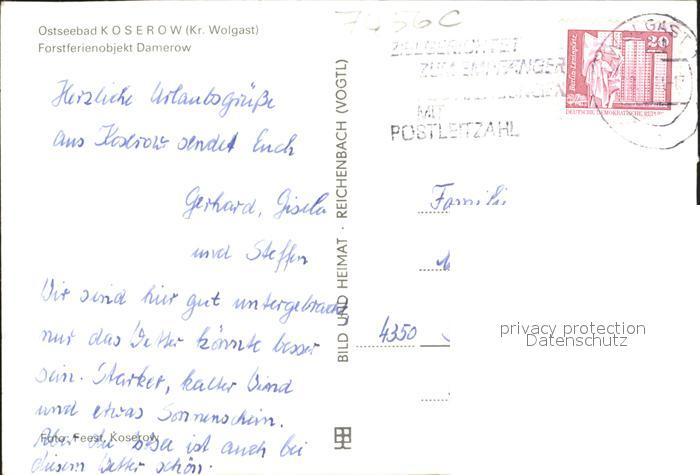 7456C
Ostseebad KOSEROW (Kr. Wolgast)
Forstferienobjekt Damerow
Herzliche Urlaubsgrüße
aus Koserow sendet Euch
Gerhard, Gisela
und Steffen
Wir sind hier gut untergebracht
nur das Wetter könnte besser
sein. Starker, kalter Wind
und etwas Sonnenschein.
Aber die See ist auch bei
diesem Wetter schön.
Foto: Feest, Koserow
BILD UND HEIMAT · REICHENBACH (VOGTL)
ZIELGERICHTET
ZUM EMPFÄNGER
MIT
POSTLEITZAHL
LGAST
20
Berlin-Leninplatz
DEUTSCHE DEMOKRATISCHE REPUBLIK
Familie
4350
privacy protection
Datenschutz